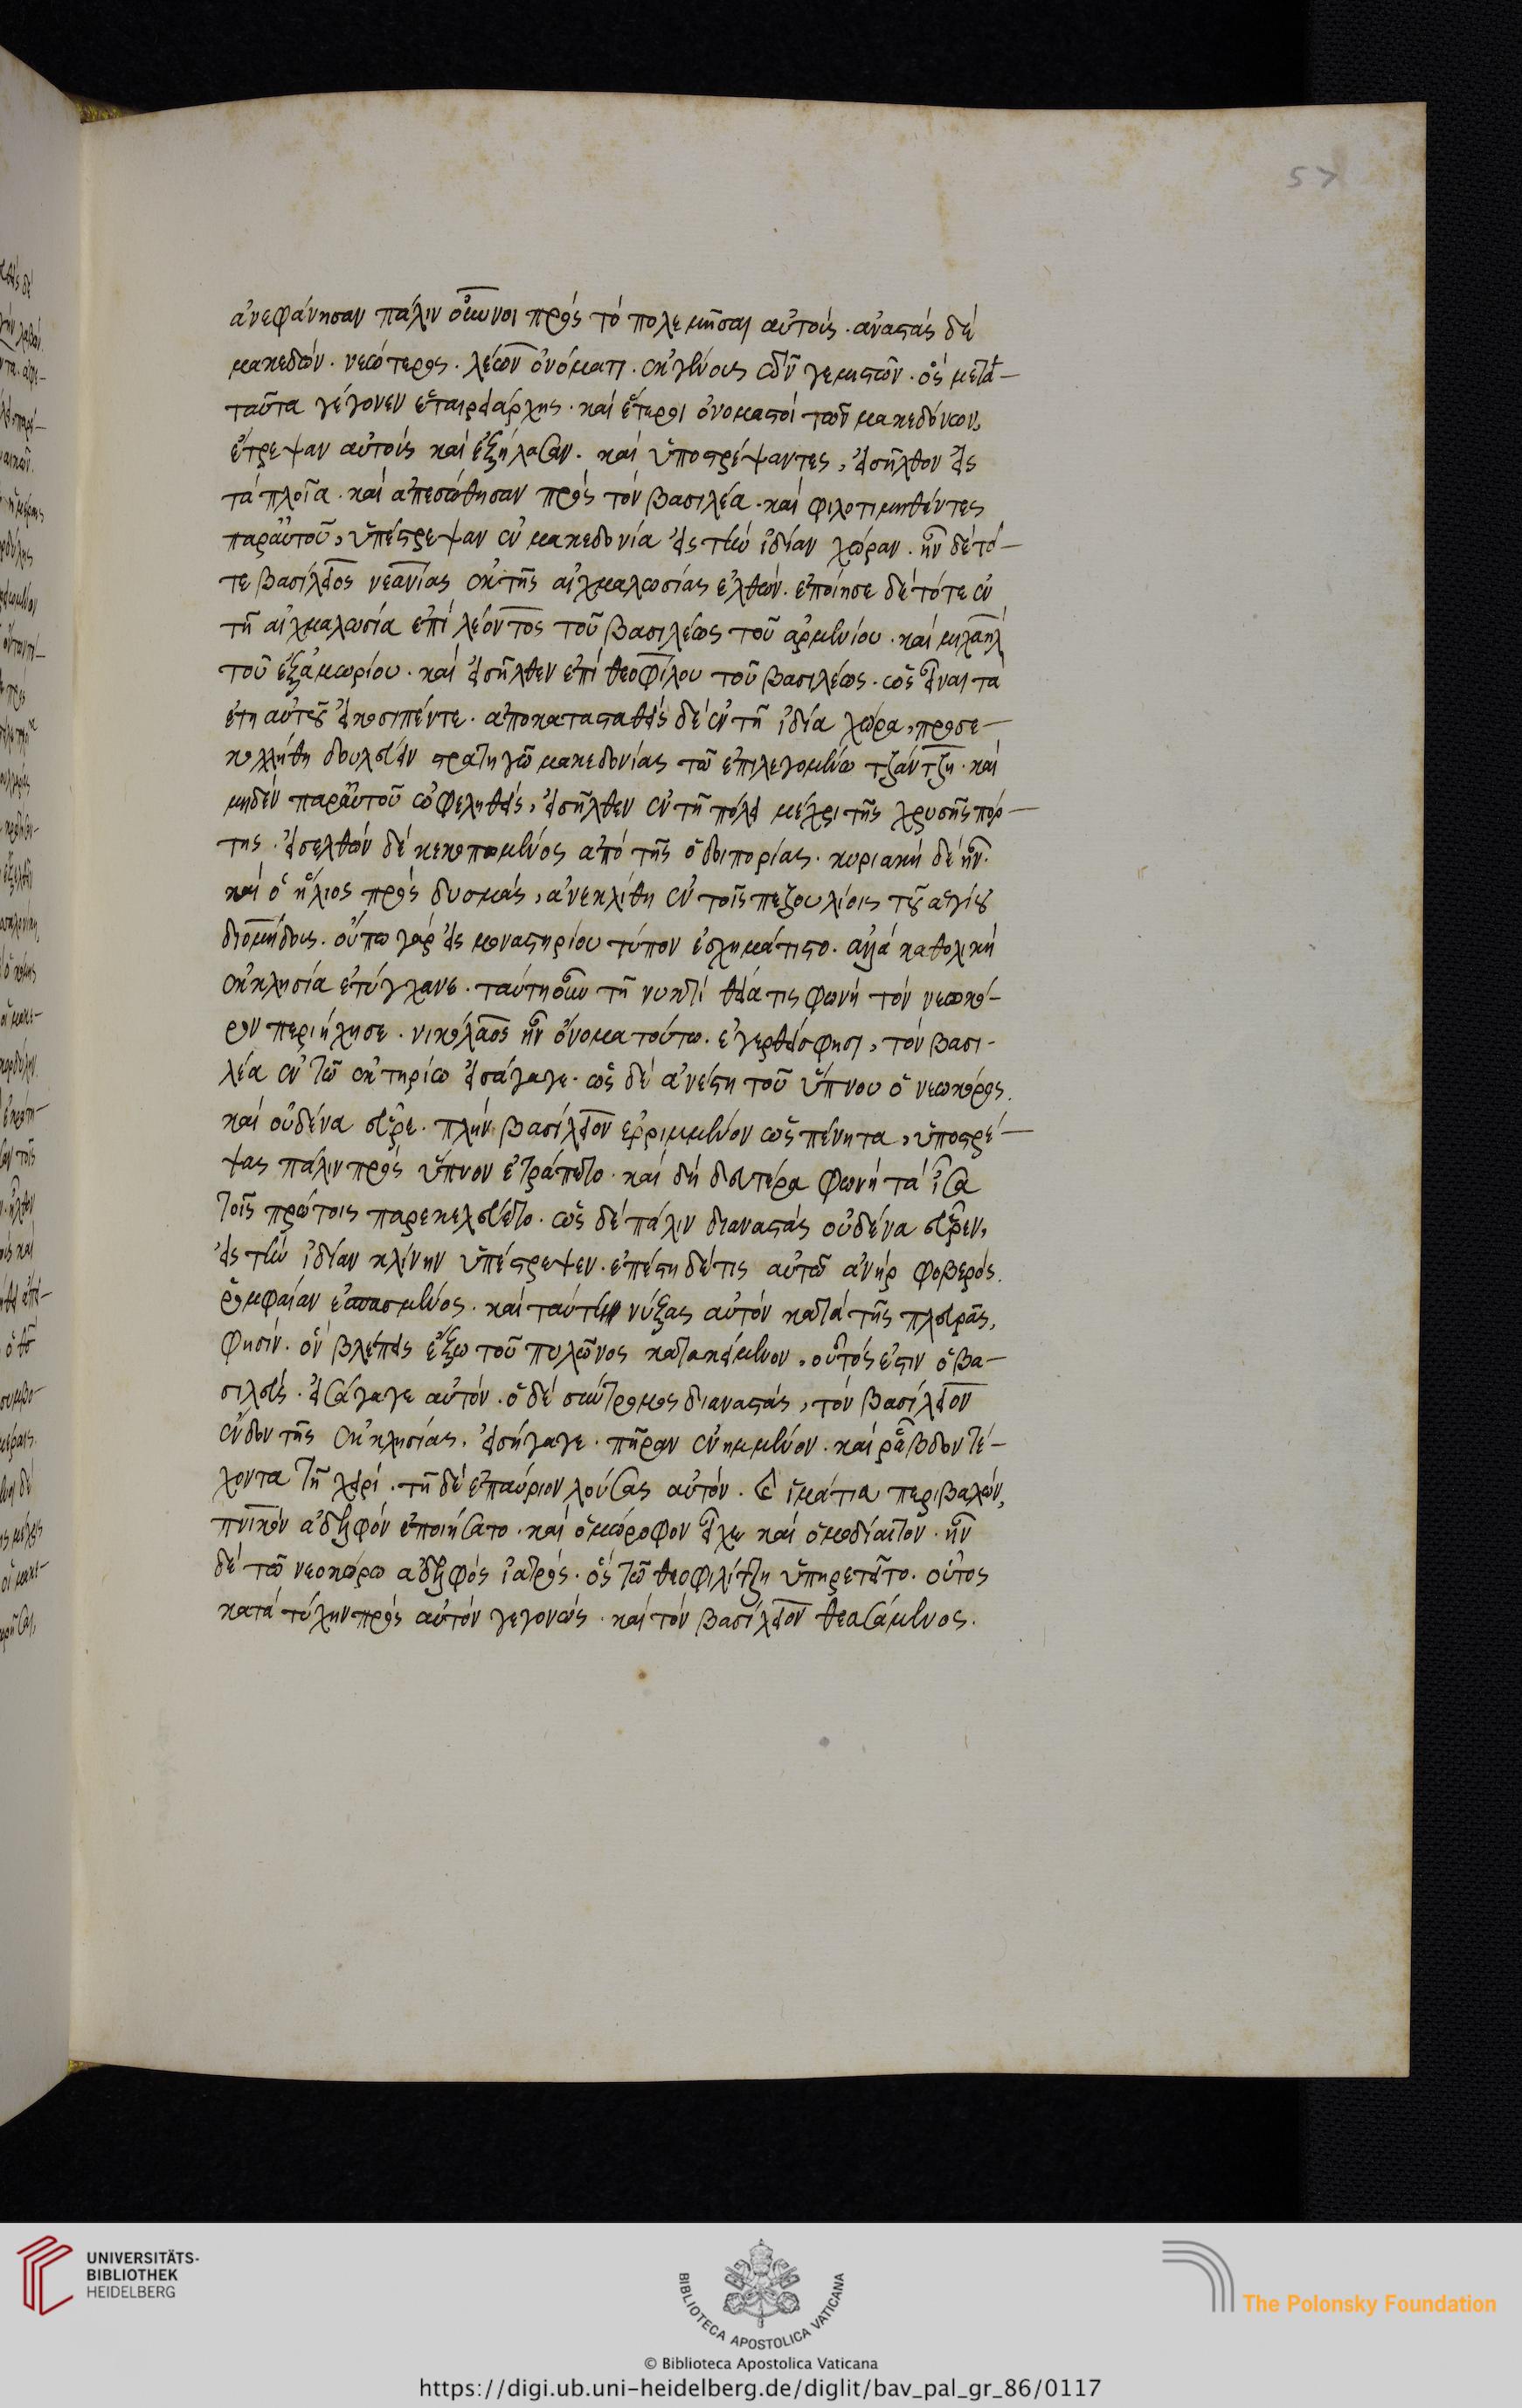 57
ἀνεφάνησαν πάλιν οὖννοι πρὸς τὸ πολεμῆσαι αὐτοὺς. ἀναστὰς δὲ
μακεδὼν. νεώτερος. λέων ὀνόματι. ἐκ γένους τῶν γεμιστῶν. ὃς μετὰ
ταῦτα γέγονεν ἑταιρειάρχης. καὶ ἕτεροι ὀνομαστοὶ τῶν μακεδόνων,
ἔτρεψαν αὐτοὺς καὶ ἐξήλασαν. καὶ ὑποστρέψαντες, εἰσῆλθον εἰς
τὰ πλοῖα. καὶ ἀπεσώθησαν πρὸς τὸν βασιλέα. καὶ φιλοτιμηθέντες
παρ αὐτοῦ, ὑπέστρεψαν ἐν μακεδονία εἰς τὴν ἰδίαν χώραν. ἦν δὲ τό-
τε βασίλειος νεανίας ἐκ τῆς αἰχμαλωσίας ἐλθών. ἐποίησε δὲ τότε ἐν
τῆ αἰχμαλωσία ἐπὶ λέοντος τοῦ βασιλέως τοῦ ἀρμενίου. καὶ μιχαὴλ
τοῦ ἐξ ἀμωρίου. καὶ εἰσῆλθεν ἐπὶ θεοφίλου τοῦ βασιλέως. ὡς εἶναι τὰ
ἔτη αὐτοῦ εἰκοσιπέντε. ἀποκατασταθεὶς δὲ ἐν τῆ ἰδία χώρα, προσε-
κολλήθη δουλεύειν στρατηγῶ μακεδονίας τῶ ἐπιλεγομένω τζάντζη. καὶ
μηδὲν παρ αὐτοῦ ὠφεληθεὶς, εἰσῆλθεν ἐν τῆ πόλει μέχρι τῆς χρυσῆς πόρ-
της. εἰσελθὼν δὲ κεκοπωμένος ἀπὸ τῆς ὁδοιπορίας. κυριακὴ δὲ ἦν.
καὶ ὁ ἥλιος πρὸς δυσμὰς, ἀνεκλίθη ἐν τοῖς πεζουλίοις τοῦ ἁγίου
διομήδους. οὔπω γὰρ εἰς μοναστηρίου τύπον ἐσχημάτιστο. ἀλλὰ καθολικὴ
ἐκκλησία ἐτύγχανε. ταύτη οὖν τῆ νυκτὶ θεία τις φωνὴ τὸν νεωκό-
ρον περιήχησε. νικόλαος ἦν ὄνομα τούτω. ἐγερθείς φησι, τὸν βασι-
λέα ἐν τῶ εὐκτηρίω εἰσάγαγε. ὡς δὲ ἀνέστη τοῦ ὕπνου ὁ νεωκόρος.
καὶ οὐδένα εὗρε. πλὴν βασίλειον ἐρριμμένον ὡς πένητα, ὑποστρέ-
ψας πάλιν πρὸς ὕπνον ἐτράπετο. καὶ δὴ δευτέρα φωνὴ τὰ ἶσα
τοῖς πρώτοις παρεκελεύετο. ὡς δὲ πάλιν διαναστὰς οὐδένα εὗρεν,
εἰς τὴν ἰδίαν κλίνην ὑπέστρεψεν. ἐπέστη δέ τις αὐτῶ ἀνὴρ φοβερός.
ῥομφαίαν ἐσπασμένος. καὶ ταύτην νύξας αὐτὸν κατὰ τῆς πλευρᾶς,
φησίν. ὃν βλέπεις ἔξω τοῦ πυλῶνος κατακείμενον, οὗτός ἐστιν ὁ βα-
σιλεύς. εἰσάγαγε αὐτόν. ὁ δὲ σύντρομος διαναστὰς, τὸν βασίλειον
ἔνδον τῆς ἐκκλησίας. εἰσήγαγε. πῆραν ἐνημμένον. καὶ ῥάβδον τέ-
χοντα τῆ χειρί. τῆ δὲ ἐπαύριον λούσας αὐτόν. καὶ ἱμάτια περιβαλών,
πνικὸν ἀδελφὸν ἐποιήσατο. καὶ ὁμώροφον εἶχε καὶ ὁμοδίαιτον. ἦν
δὲ τῶ νεοκώρω ἀδελφὸς ἰατρός. ὃς τῶ θεοφιλίτζη ὑπηρετεῖτο. οὗτος
κατὰ τύχην πρὸς αὐτὸν γεγονώς. καὶ τὸν βασίλειον θεασάμενος.
UNIVERSITÄTS-
BIBLIOTHEK
HEIDELBERG
BIBLIOTECA APOSTOLICA VATICANA
The Polonsky Foundation
© Biblioteca Apostolica Vaticana
https://digi.ub.uni-heidelberg.de/diglit/bav_pal_gr_86/0117